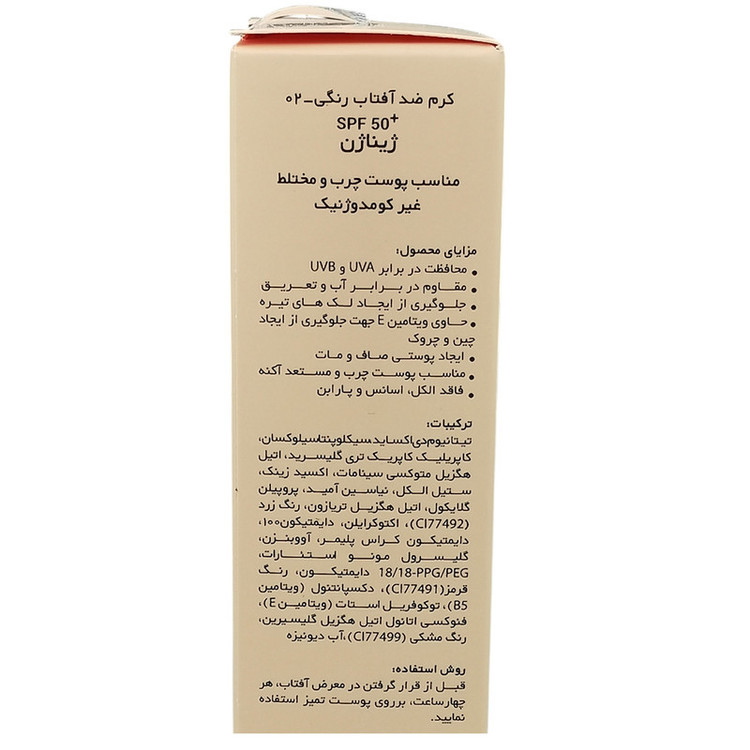 کرم ضد آفتاب رنگی-۰۲
SPF 50+
ژیناژن
مناسب پوست چرب و مختلط
غیر کومدوژنیک
مزایای محصول:
• محافظت در برابر UVA و UVB
• مقاوم در برابر آب و تعریق
• جلوگیری از ایجاد لک های تیره
• حاوی ویتامین E جهت جلوگیری از ایجاد
چین و چروک
• ایجاد پوستی صاف و مات
• مناسب پوست چرب و مستعد آکنه
• فاقد الکل، اسانس و پارابن
ترکیبات:
تیتانیوم دی اکساید، سیکلوپنتاسیلوکسان،
کاپریلیک کاپریک تری گلیسرید، اتیل
هگزیل متوکسی سینامات، اکسید زینک،
ستیل الکل، نیاسین آمید، پروپیلن
گلایکول، اتیل هگزیل تریازون، رنگ زرد
(CI77492)، اکتوکرایلن، دایمتیکون۱۰۰،
دایمتیکون کراس پلیمر، آووبنزن،
گلیسرول مونو استئارات،
18/18-PPG/PEG دایمتیکون، رنگ
قرمز(CI77491)، دکسپانتنول (ویتامین
B5)، توکوفریل استات (ویتامین E)،
فنوکسی اتانول اتیل هگزیل گلیسیرین،
رنگ مشکی (CI77499)،آب دیونیزه
روش استفاده:
قبل از قرار گرفتن در معرض آفتاب، هر
چهارساعت، برروی پوست تمیز استفاده
نمایید.